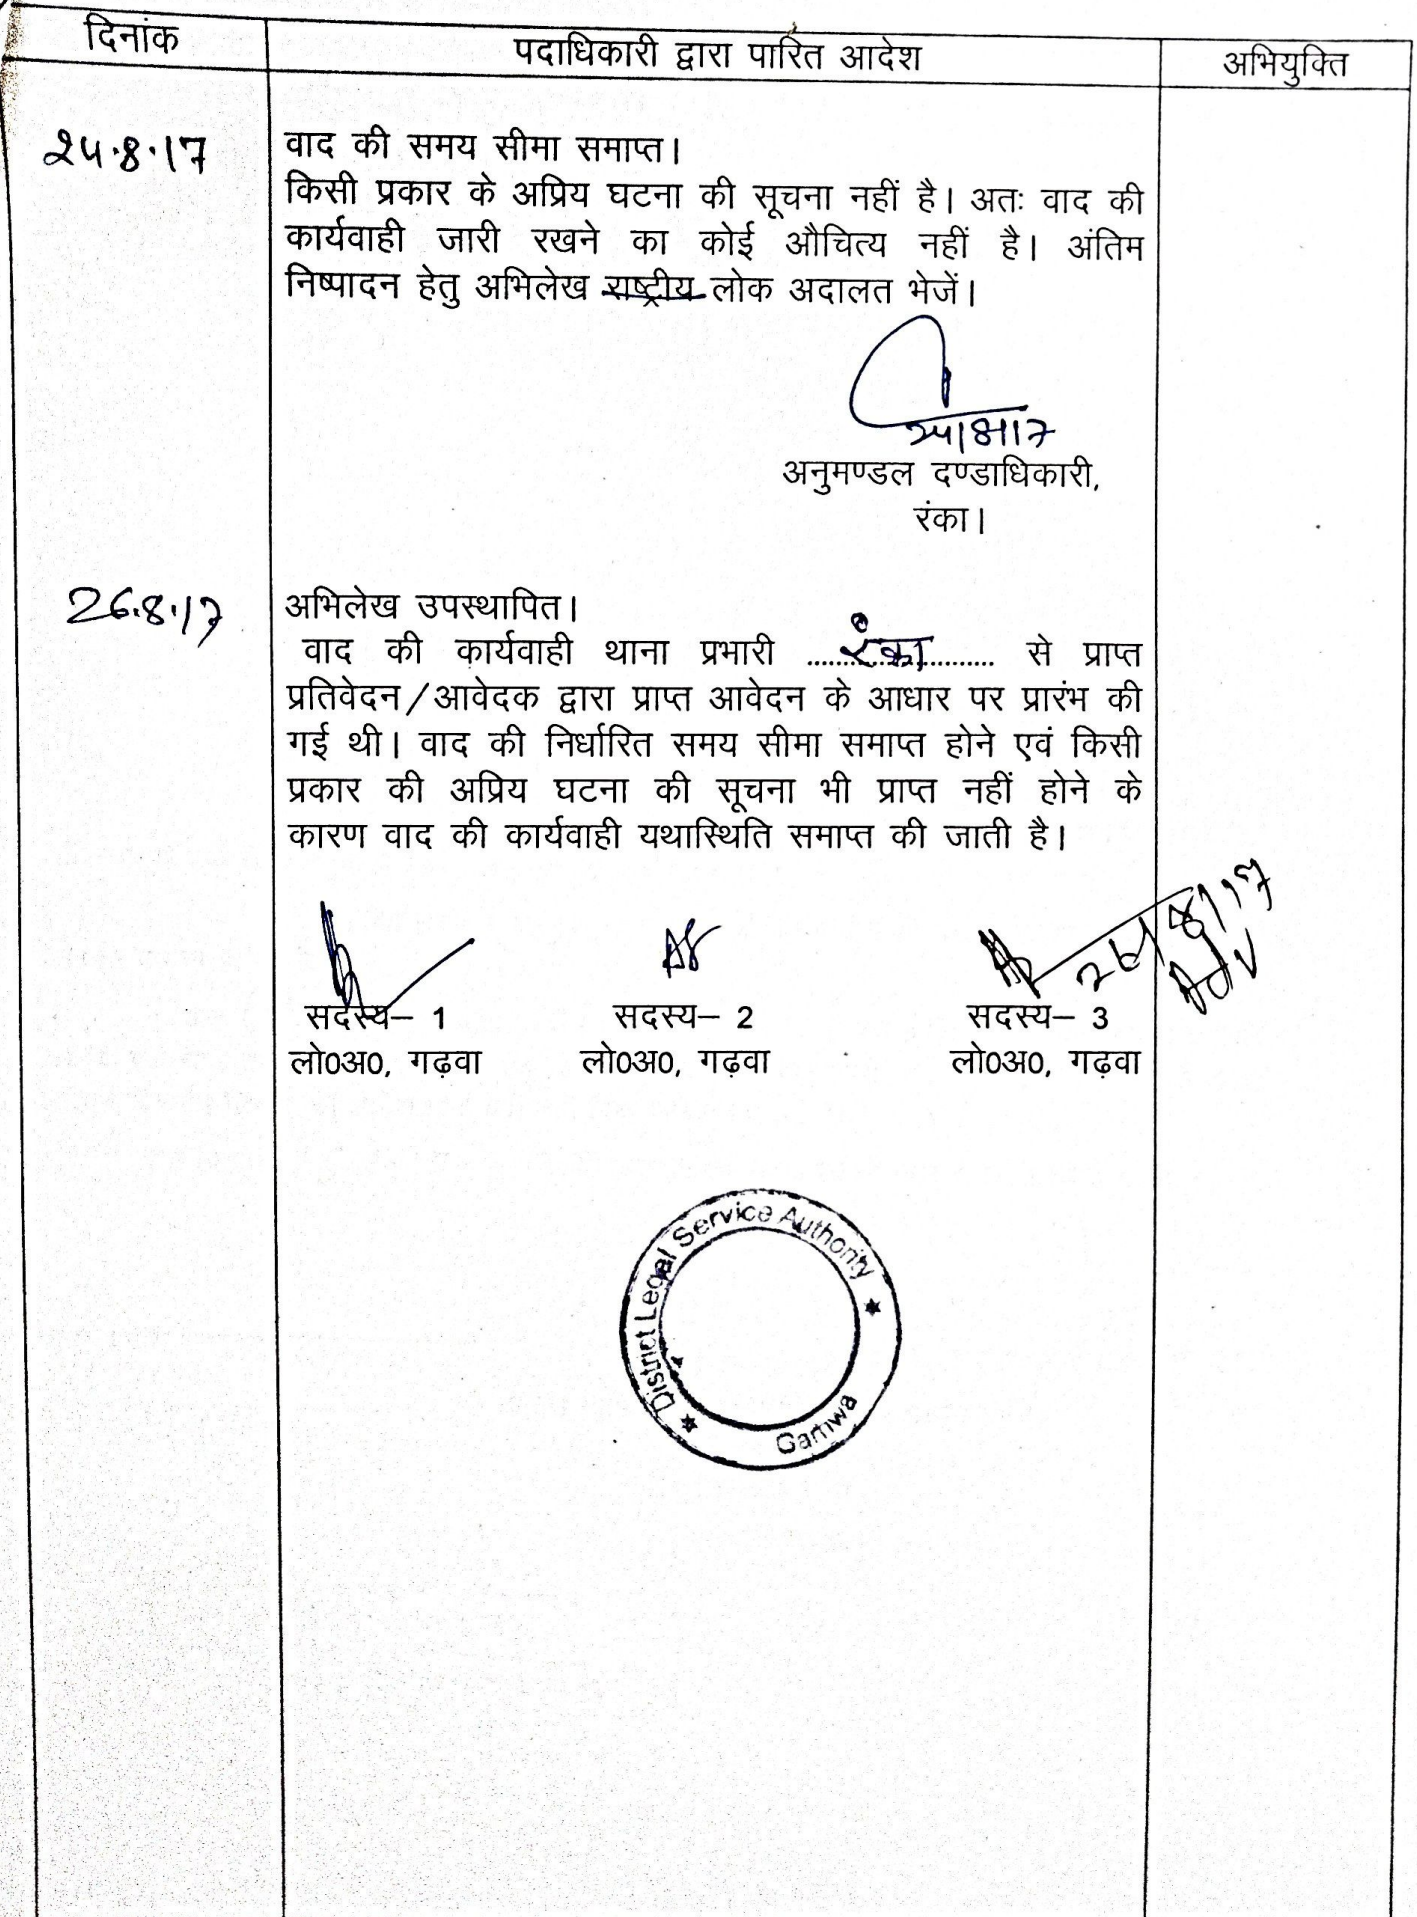 दिनांक पदाधिकारी द्वारा पारित आदेश अभियुक्ति
२५.8.17 वाद की समय सीमा समाप्त।
किसी प्रकार के अप्रिय घटना की सूचना नहीं है। अतः वाद की
कार्यवाही जारी रखने का कोई औचित्य नहीं है। अंतिम
निष्पादन हेतु अभिलेख राष्ट्रीय लोक अदालत भेजें।
अनुमण्डल दण्डाधिकारी,
रंका।
26.8.17 अभिलेख उपस्थापित।
वाद की कार्यवाही थाना प्रभारी ..........रंका.......... से प्राप्त
प्रतिवेदन/आवेदक द्वारा प्राप्त आवेदन के आधार पर प्रारंभ की
गई थी। वाद की निर्धारित समय सीमा समाप्त होने एवं किसी
प्रकार की अप्रिय घटना की सूचना भी प्राप्त नहीं होने के
कारण वाद की कार्यवाही यथास्थिति समाप्त की जाती है।
सदस्य– 1 सदस्य– 2 सदस्य– 3
लो0अ0, गढ़वा लो0अ0, गढ़वा लो0अ0, गढ़वा
District Legal Service Authority
Garhwa